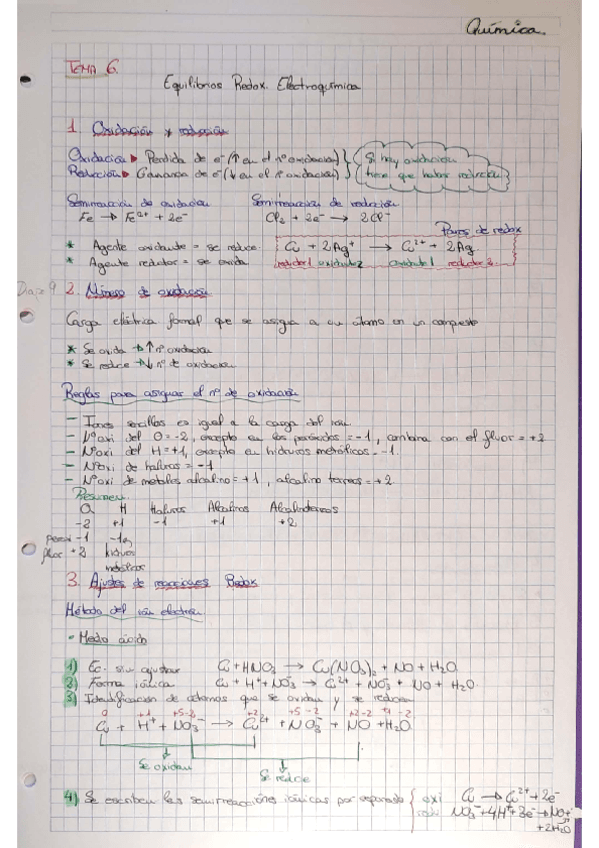 Química.
TEMA 6.
Equilibrios Redox. Electroquímica
1. Oxidación y reducción
Oxidación ▶ Perdida de e⁻ (↑ en el nº oxidación) } Si hay oxidación
Reducción ▶ Ganancia de e⁻ (↓ en el nº oxidación) } tiene que haber reducción
Semirreacción de oxidación Semirreacción de reducción
Fe → Fe²⁺ + 2e⁻ Cl₂ + 2e⁻ → 2Cl⁻
Pares de redox
* Agente oxidante = se reduce. Cu + 2Ag⁺ → Cu²⁺ + 2Ag
* Agente reductor = se oxida reductor1 oxidante2 oxidante1 reductor2.
2. Número de oxidación
Carga eléctrica formal que se asigna a un átomo en un compuesto
* Se oxida → ↑ nº oxidación
* Se reduce → ↓ nº de oxidación
Reglas para asignar el nº de oxidación
- Iones sencillos es igual a la carga del ion
- Nºoxi del O = -2, excepto en los peróxidos = -1, combina con el fluor = +2
- Nºoxi del H = +1, excepto en hidruros metálicos = -1.
- Nºoxi de haluros = -1
- Nºoxi de metales alcalino = +1, alcalino terreos = +2
Resumen.
O H Haluros Alcalinos Alcalinoterreos
-2 +1 -1 +1 +2
perox -1 -1
fluor +2 hidruros
metálicos
3. Ajustes de reacciones Redox
Método del ión electrón
- Medio ácido
1) Ec. sin ajustar Cu + HNO₃ → Cu(NO₃)₂ + NO + H₂O
2) Forma iónica Cu + H⁺ + NO₃⁻ → Cu²⁺ + NO₃⁻ + NO + H₂O.
3) Identificación de átomos que se oxidan y se reducen
0 +1 +5 -2 +2 +5 -2 +2 -2 +1 -2
Cu + H⁺ + NO₃⁻ → Cu²⁺ + NO₃⁻ + NO + H₂O
Se oxidan
Se reduce
4) Se escriben las semirreacciones iónicas por separado { oxi Cu → Cu²⁺ + 2e⁻
redu NO₃⁻ + 4H⁺ + 3e⁻ → NO +
+ 2H₂O